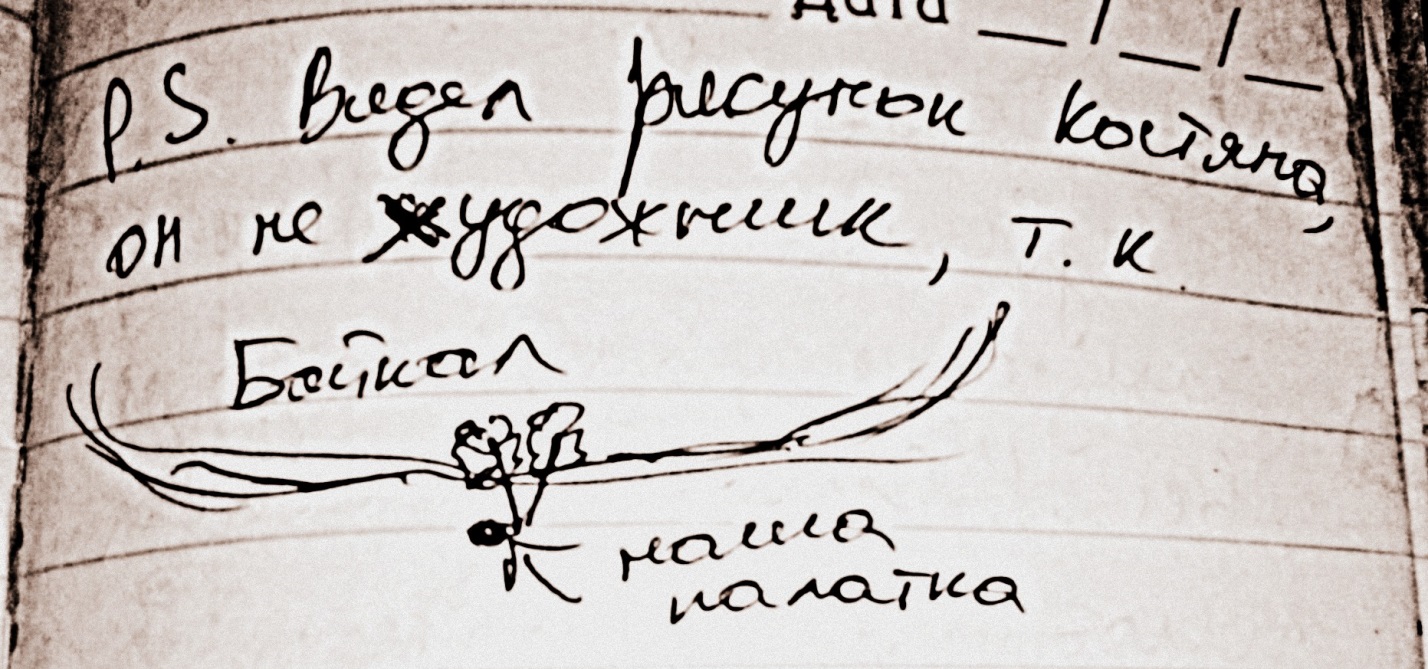 Дата __/__/__
P.S. Видел рисунок Костяна,
он не художник, т. к.
Байкал
наша
палатка